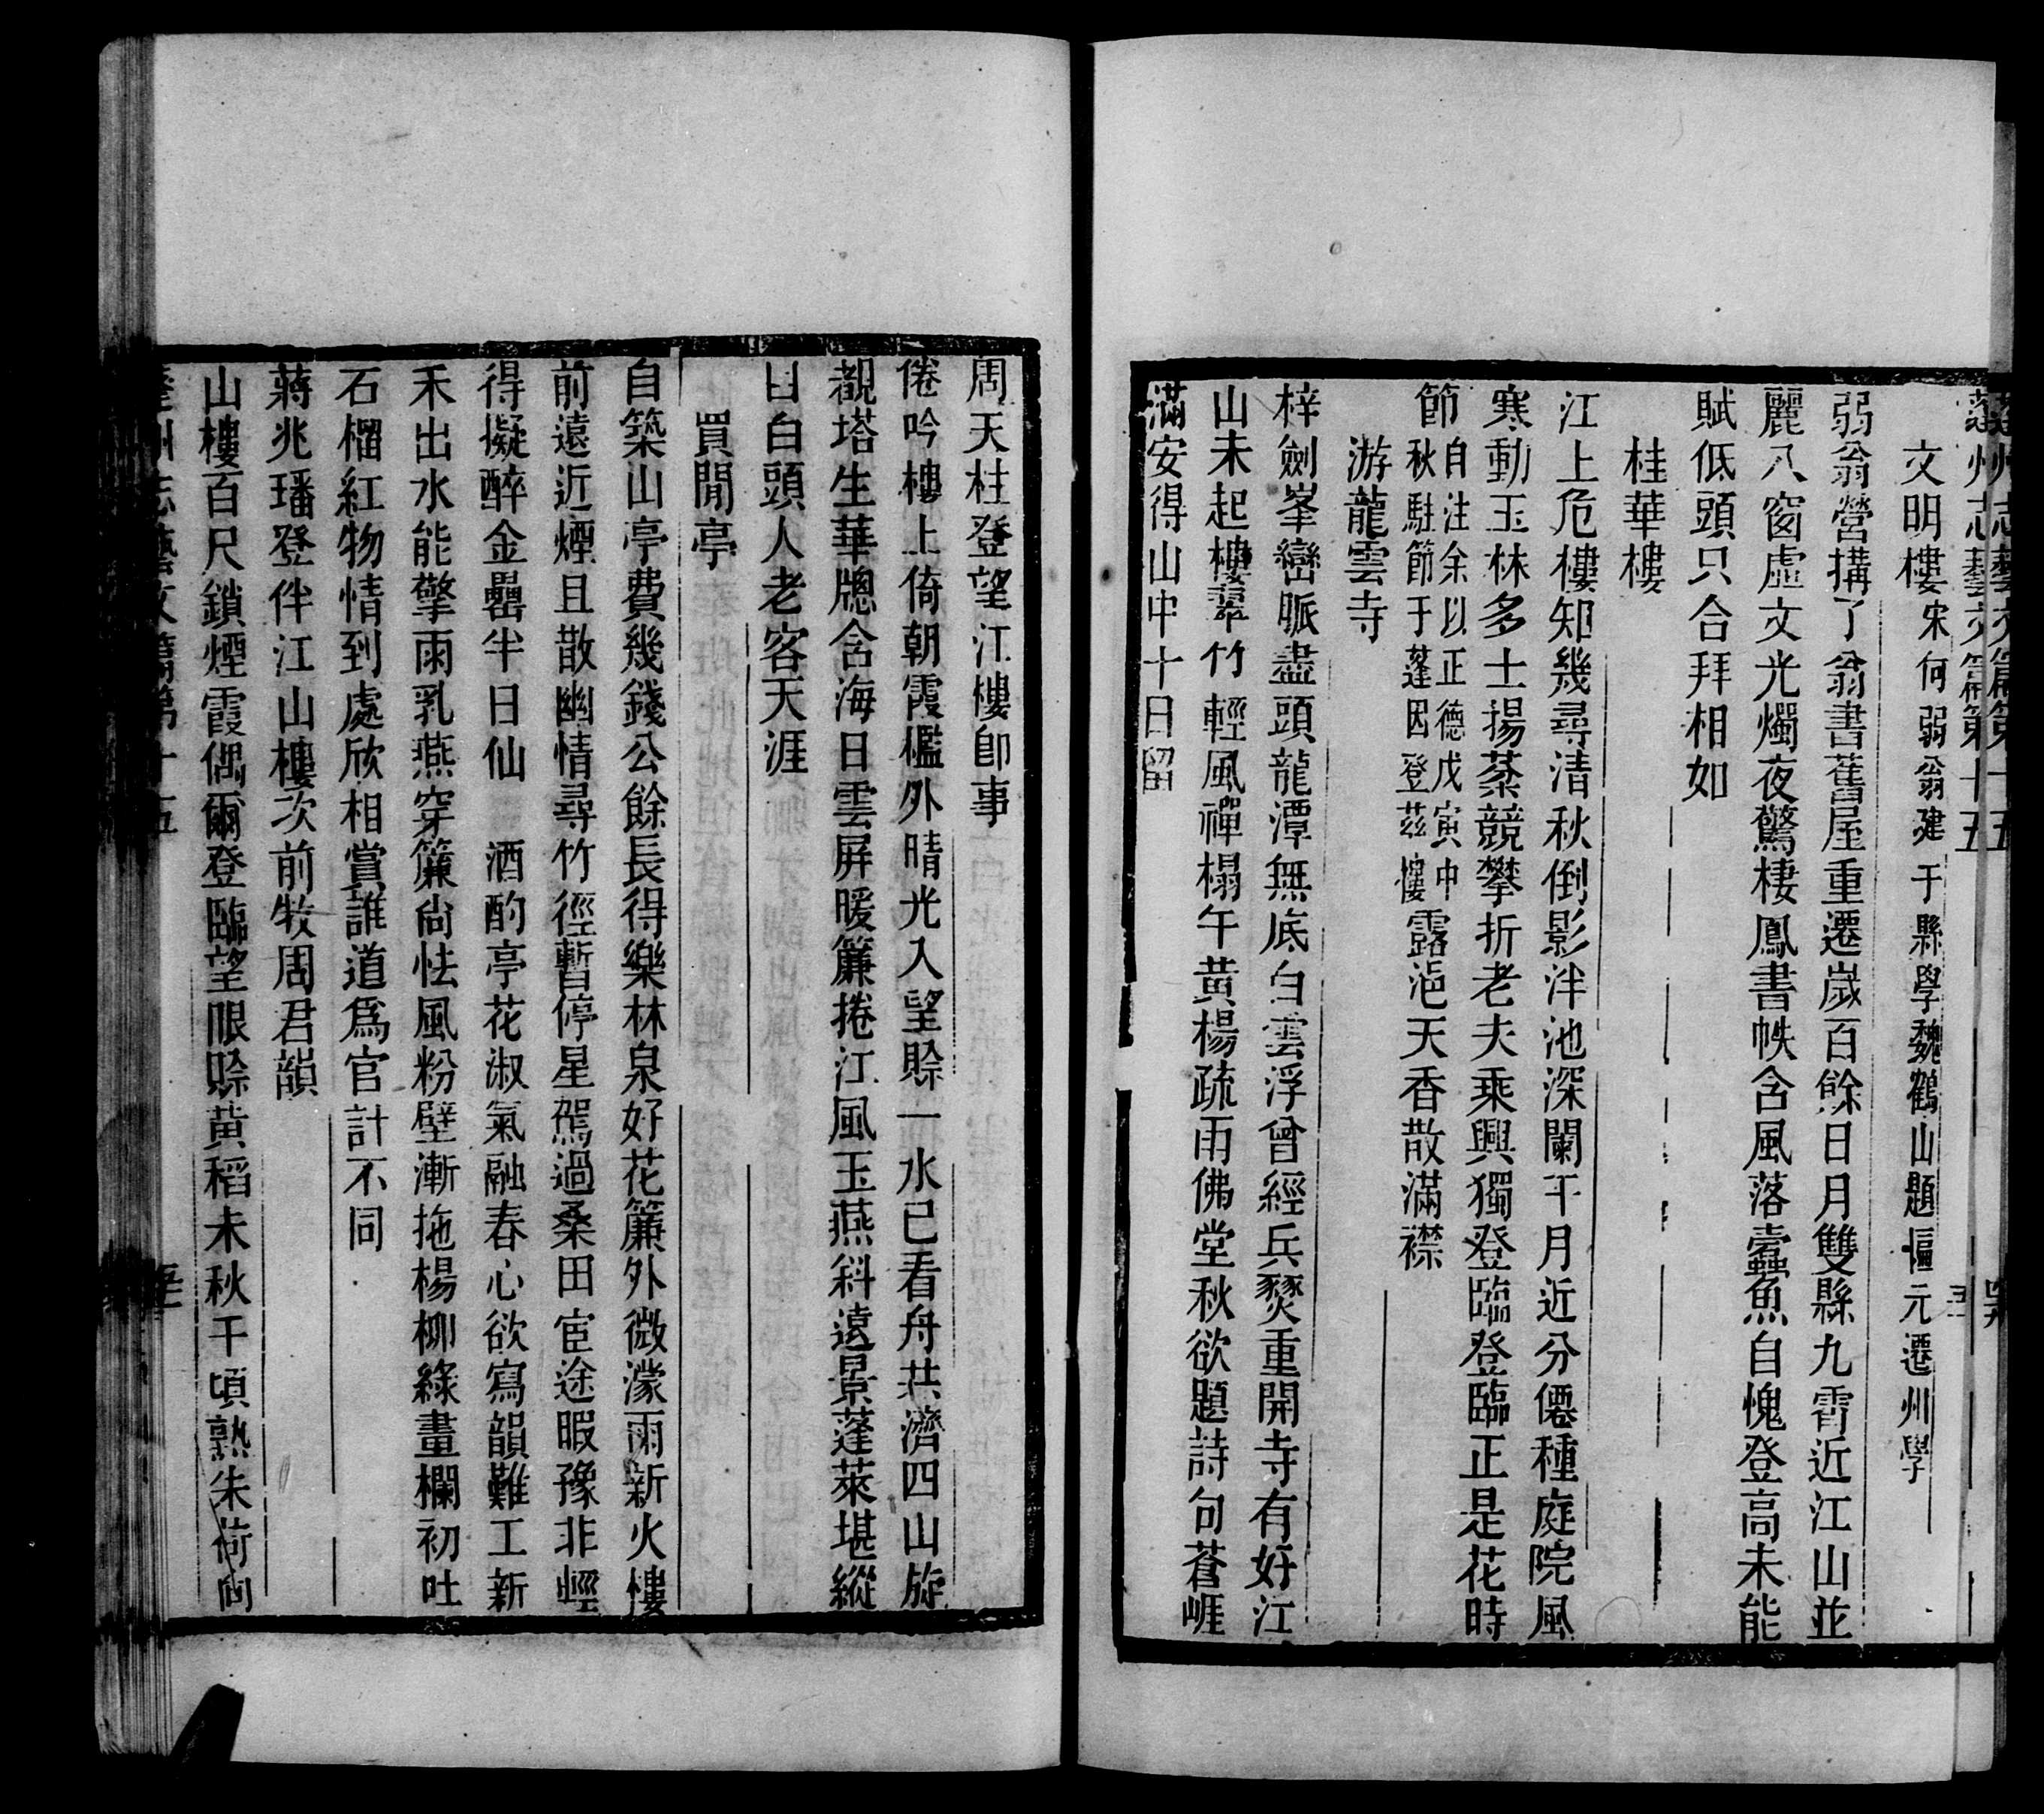 蓬州志藝文篇第十五
文明樓宋何弱翁建于縣學魏鶴山題榲元遷州學
弱翁營搆了翁書舊屋重遷歲百餘日月雙縣九霄近江山並
麗八窗虛文光燭夜驚棲鳳書帙含風落蠹魚自愧登高未能
賦低頭只合拜相如
桂華樓
江上危樓知幾尋清秋倒影泮池深闌干月近分僊種庭院風
寒動玉林多士揚棻競攀折老夫乘興獨登臨登臨正是花時
節自注余以正德戊寅中秋駐節于蓬因登茲樓露浥天香散滿襟
游龍雲寺
梓劍峯巒脈盡頭龍潭無底白雲浮曾經兵燹重開寺有好江
山未起樓翠竹輕風禪榻午黃楊疏雨佛堂秋欲題詩句蒼崕
滿安得山中十日留
周天柱登望江樓卽事
倦吟樓上倚朝霞檻外晴光入望賒一水已看舟共濟四山旋
覩塔生華牕含海日雲屏暖簾捲江風玉燕斜遠景蓬萊堪縱
目白頭人老客天涯
買閒亭
自築山亭費幾錢公餘長得樂林泉好花簾外微濛雨新火樓
前遠近煙且散幽情尋竹徑暫停星駕過桑田宦途暇豫非輕
得擬醉金罍半日仙 酒酌亭花淑氣融春心欲寫韻難工新
禾出水能擎雨乳燕穿簾尙怯風粉壁漸拖楊柳綠畫欄初吐
石榴紅物情到處欣相賞誰道爲官計不同
蔣兆璠登伴江山樓次前牧周君韻
山樓百尺鎖煙霞偶爾登臨望眼賒黃稻未秋千頃熟朱荷向
蓬州志藝文篇第十五